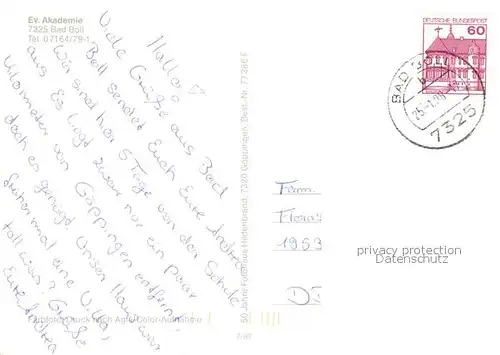 Ev. Akademie
7325 Bad Boll
Tel. 07164/79-1
Hallo!
Viele Grüße aus Bad
Boll sendet Euch Eure Andrea
Wir sind hier 5 Tage von der Schule
aus. Es liegt zwar nur ein paar
Kilometer von Göppingen entfernt,
doch es genügt. Unser Haus war
früher mal eine Villa,
toll was? Grüße
Eure Andrea
Farbfoto: Druck nach Agfa-Color-Aufnahme
50 Jahre Fotohaus Hildenbrand, 7320 Göppingen, Best.-Nr.
7/87
DEUTSCHE BUNDESPOST
60
BAD BOLL
7325
Fam.
1953
D
privacy protection
Datenschutz